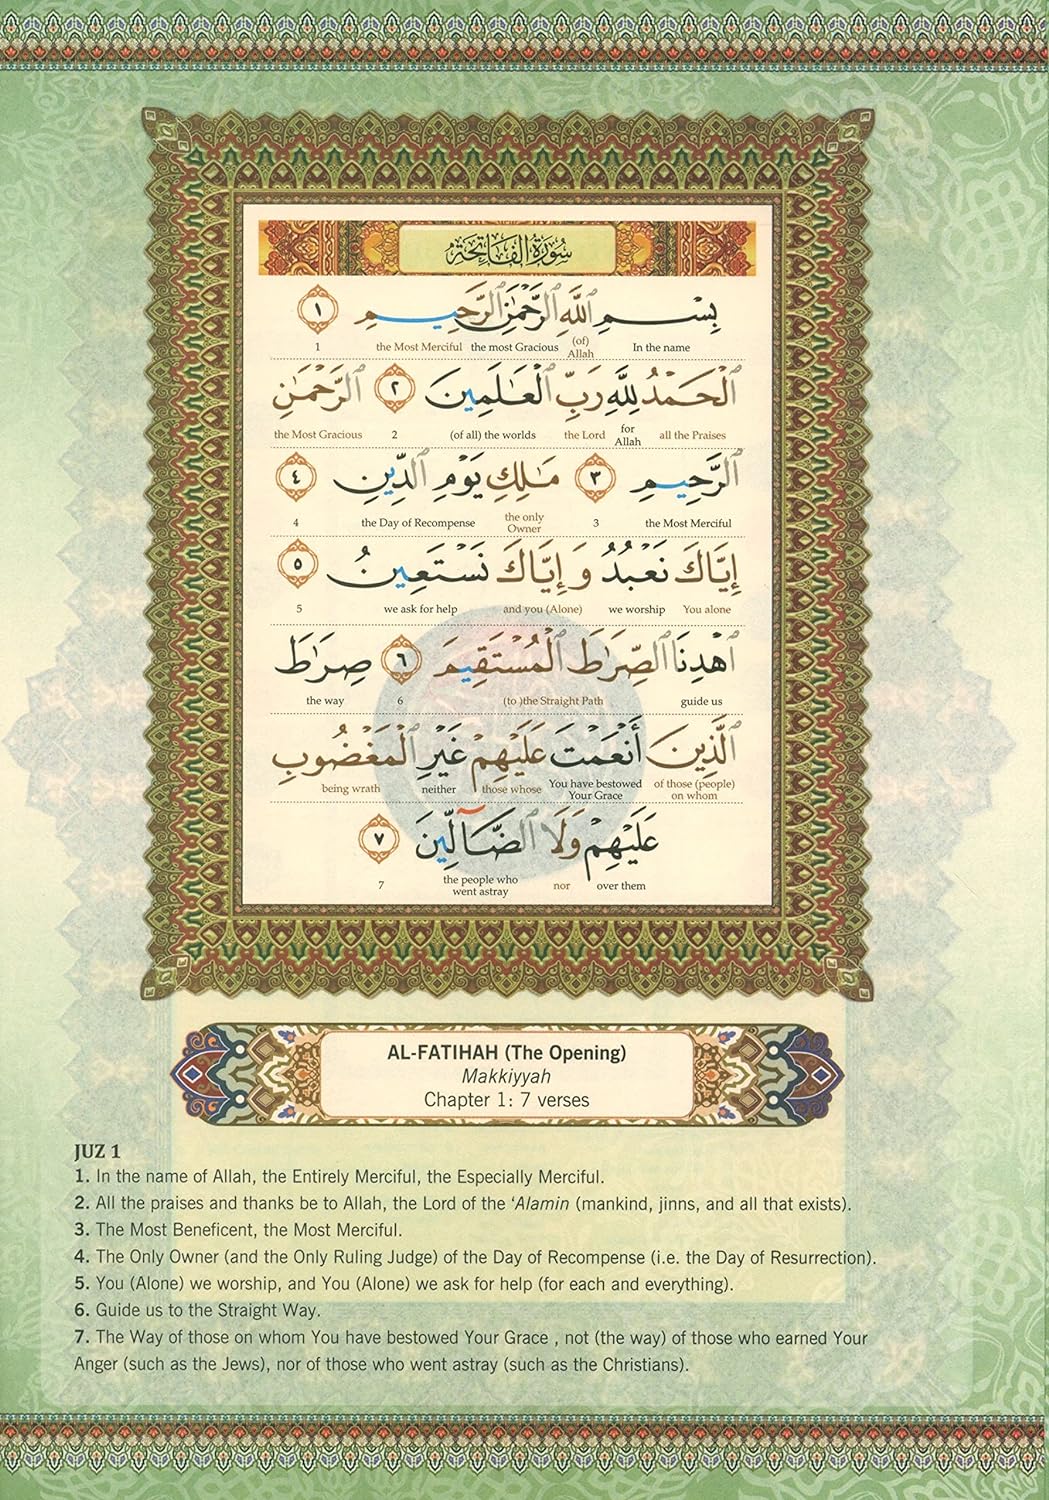 سُورَةُ الفَاتِحَةِ
بِسْمِ ٱللَّهِ ٱلرَّحْمَٰنِ ٱلرَّحِيمِ ١
In the name (of) Allah the most Gracious the Most Merciful 1
ٱلْحَمْدُ لِلَّهِ رَبِّ ٱلْعَٰلَمِينَ ٢ ٱلرَّحْمَٰنِ
all the Praises for Allah the Lord (of all) the worlds 2 the Most Gracious
ٱلرَّحِيمِ ٣ مَٰلِكِ يَوْمِ ٱلدِّينِ ٤
the Most Merciful 3 the only Owner the Day of Recompense 4
إِيَّاكَ نَعْبُدُ وَإِيَّاكَ نَسْتَعِينُ ٥
You alone we worship and you (Alone) we ask for help 5
ٱهْدِنَا ٱلصِّرَٰطَ ٱلْمُسْتَقِيمَ ٦ صِرَٰطَ
guide us (to )the Straight Path 6 the way
ٱلَّذِينَ أَنْعَمْتَ عَلَيْهِمْ غَيْرِ ٱلْمَغْضُوبِ
of those (people) on whom You have bestowed Your Grace those whose neither being wrath
عَلَيْهِمْ وَلَا ٱلضَّآلِّينَ ٧
over them nor the people who went astray 7
AL-FATIHAH (The Opening)
Makkiyyah
Chapter 1: 7 verses
JUZ 1
1. In the name of Allah, the Entirely Merciful, the Especially Merciful.
2. All the praises and thanks be to Allah, the Lord of the ‘Alamin (mankind, jinns, and all that exists).
3. The Most Beneficent, the Most Merciful.
4. The Only Owner (and the Only Ruling Judge) of the Day of Recompense (i.e. the Day of Resurrection).
5. You (Alone) we worship, and You (Alone) we ask for help (for each and everything).
6. Guide us to the Straight Way.
7. The Way of those on whom You have bestowed Your Grace , not (the way) of those who earned Your
Anger (such as the Jews), nor of those who went astray (such as the Christians).